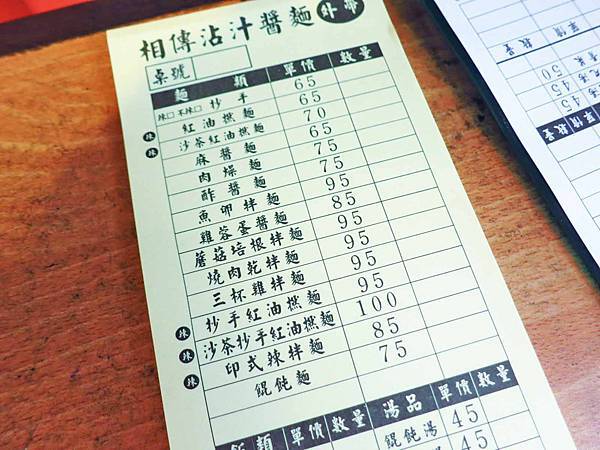 相傳沾汁醬麵 外帶
桌號
麵類 單價 數量
辣□ 不辣□ 抄手 65
辣 紅油撚麵 65
辣 沙茶紅油撚麵 70
麻醬麵 65
肉燥麵 75
酢醬麵 75
魚卵拌麵 95
雞蓉蛋醬麵 85
蘑菇培根拌麵 95
燒肉乾拌麵 95
三杯雞拌麵 95
辣 抄手紅油撚麵 95
辣 沙茶抄手紅油撚麵 100
辣 印式辣拌麵 85
餛飩麵 75
飯類 單價 數量 湯品 單價 數量
餛飩湯 45
45
數量
50
45
45
單價 數量